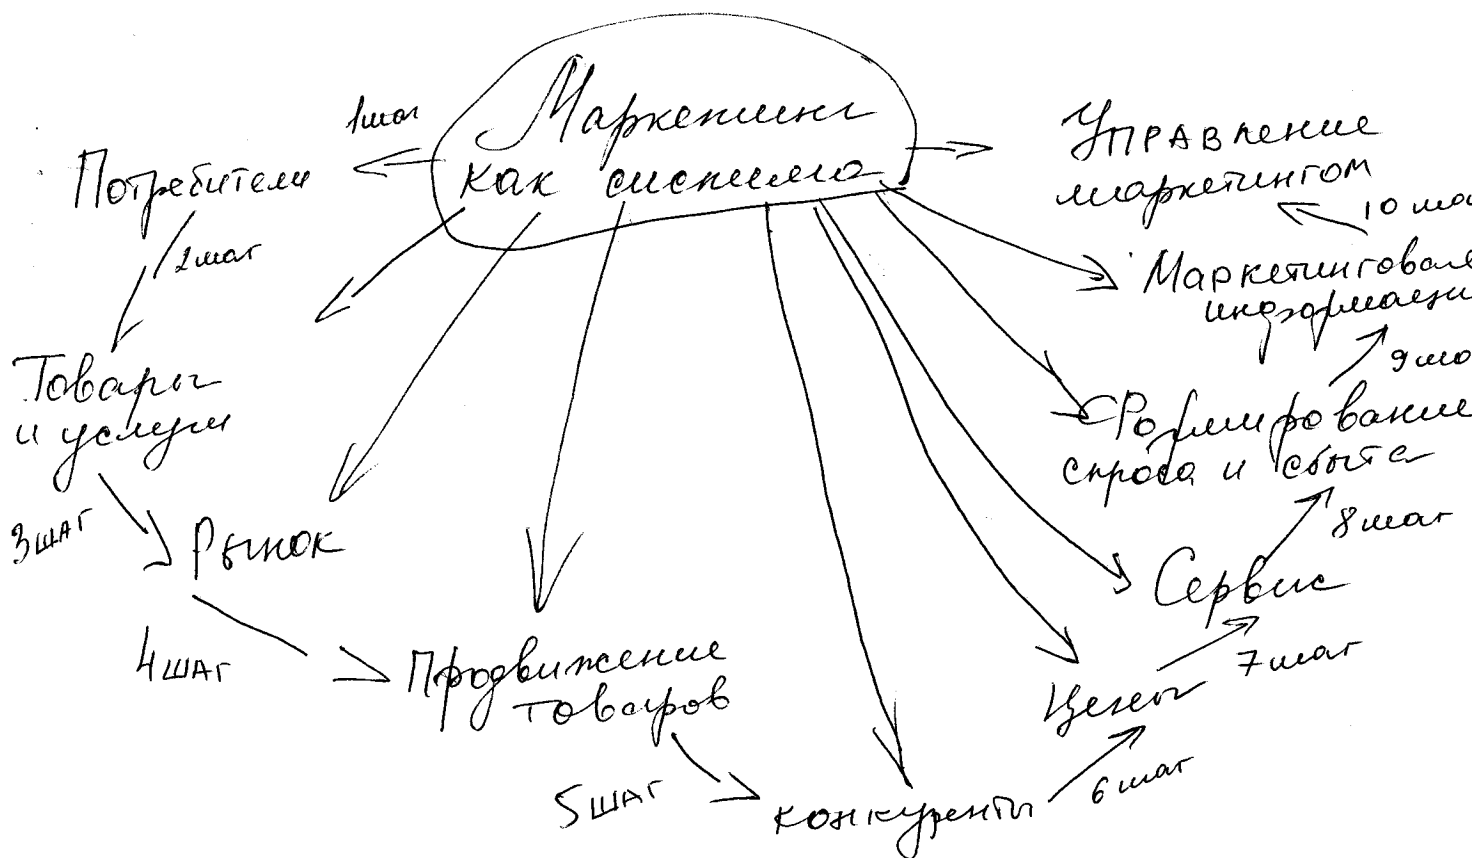 Маркетинг
как система
1 шаг
Потребители
2 шаг
Товары
и услуги
3 шаг
Рынок
4 шаг
Продвижение
товаров
5 шаг
конкуренты
6 шаг
Цены
7 шаг
Сервис
8 шаг
Формирование
спроса и сбыта
9 ша
Маркетинговая
информаци
10 ша
Управление
маркетингом